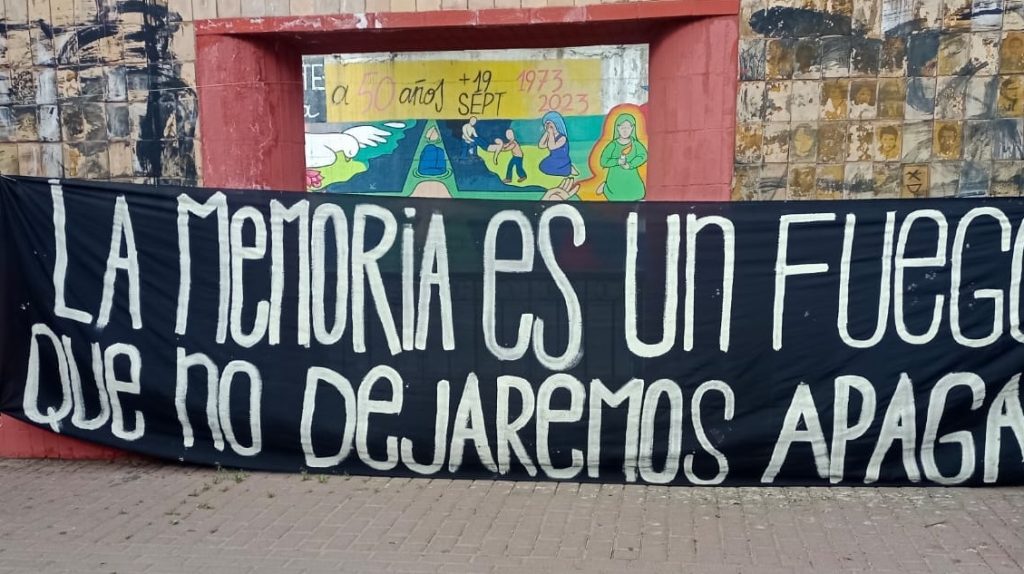 a 50 años +19 SEPT 1973 2023
LA MEMORIA ES UN FUEGO
QUE NO DEJAREMOS APAGA